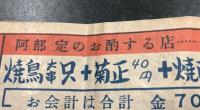 阿部定のお酌する店……
焼鳥大串一本只+菊正40円+焼
お会計は合計 金70